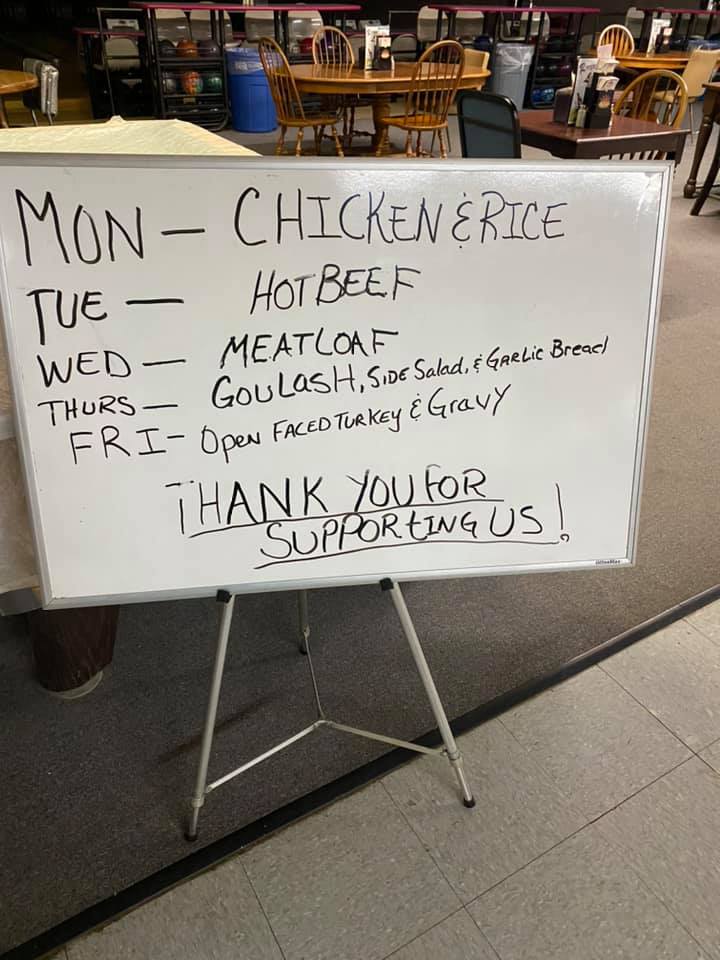 MON - CHICKEN & RICE
TUE - HOT BEEF
WED - MEATLOAF
THURS - GOULASH, SIDE Salad, & GARLIC Bread
FRI - Open FACED TURKEY & Gravy
THANK YOU FOR
SUPPORTING US!
OfficeMax